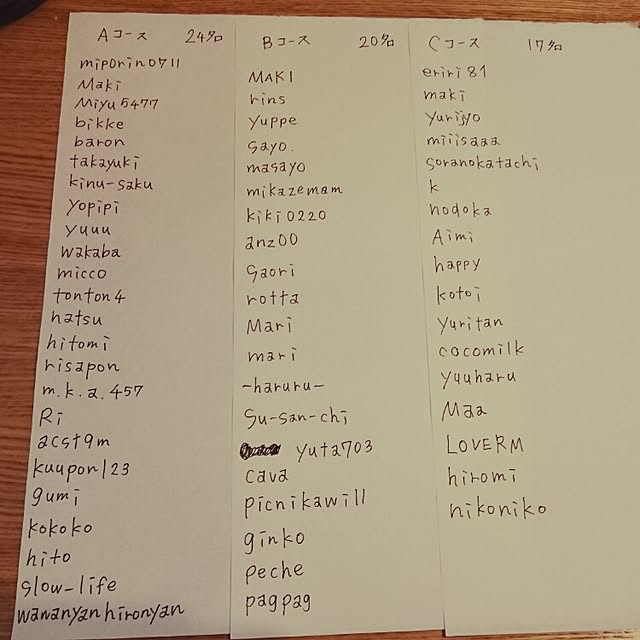 Aコース 24名
miporin0711
Maki
Miyu5477
bikke
baron
takayuki
kinu-saku
yopipi
yuuu
wakaba
micco
tonton4
hatsu
hitomi
risapon
m.k.a.457
Ri
acst9m
kuupon123
gumi
kokoko
hito
slow-life
wananyanhironyan
Bコース 20名
MAKI
rins
yuppe
sayo.
masayo
mikazemam
kiki0220
anz00
saori
rotta
Mari
mari
-haruru-
su-san-chi
yuta703
cava
picnikawill
ginko
peche
pagpag
Cコース 17名
eriri81
maki
yurijyo
miiisaaa
soranokatachi
k
nodoka
Aimi
happy
kotoi
yuritan
cocomilk
yuuharu
Maa
LOVERM
hiromi
nikoniko